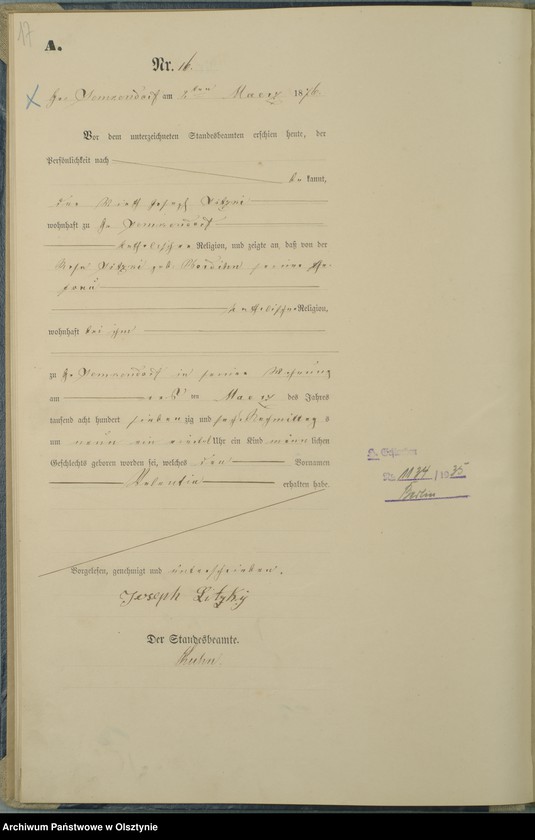 17
A.
Nr. 16.
Gr. am ten Maerz 1876
Vor dem unterzeichneten Standesbeamten erschien heute, der
Persönlichkeit nach
be kannt,
der Wirth Joseph
wohnhaft zu Gr.
katholischer Religion, und zeigte an, daß von der
geb. seiner Ehe-
frau
katholischer Religion,
wohnhaft bei ihm
zu Gr. in seiner Wohnung
am ten Maerz des Jahres
tausend acht hundert siebenzig und sechs Nachmittags
um neun ein viertel Uhr ein Kind männlichen
Geschlechts geboren worden sei, welches den Vornamen
Valentin erhalten habe.
Vorgelesen, genehmigt und unterschrieben.
Joseph Litzky
Der Standesbeamte.
Nr. 1184/1935
Berlin
Archiwum Państwowe w Olsztynie